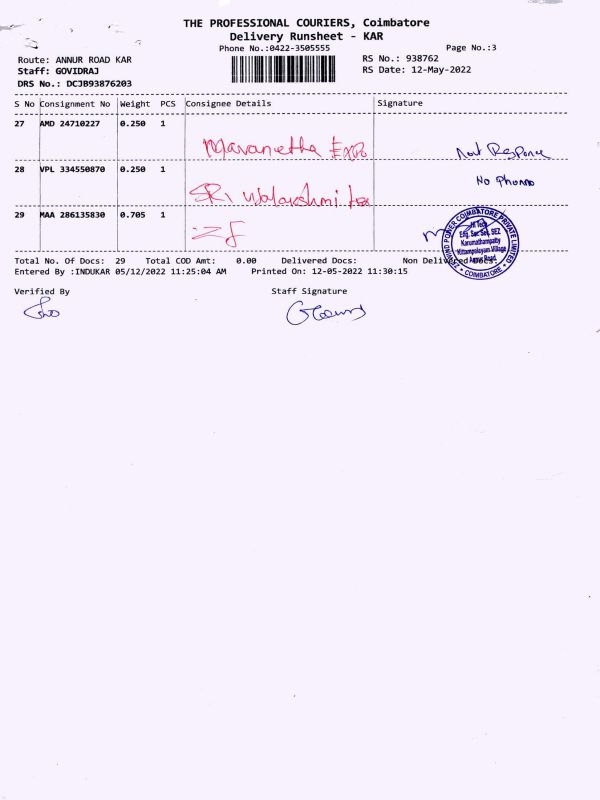 THE PROFESSIONAL COURIERS, Coimbatore
Delivery Runsheet - KAR
Phone No.:0422-3505555
Page No.:3
Route: ANNUR ROAD KAR
RS No.: 938762
Staff: GOVIDRAJ
RS Date: 12-May-2022
DRS No.: DCJB93876203
S No Consignment No Weight PCS Consignee Details Signature
27 AMD 24710227 0.250 1
Maranetha Exp
Not Response
28 VPL 334550870 0.250 1
No Phone
SRI
29 MAA 286135830 0.705 1
ZF
COIMBATORE PRIVATE LIMITED
Hi Tech
Eng. Ser. Sec. SEZ
Karumathampatty
Kittampalayam Village
Annur Road
COIMBATORE
Total No. Of Docs: 29 Total COD Amt: 0.00 Delivered Docs: Non Delivered Docs:
Entered By :INDUKAR 05/12/2022 11:25:04 AM Printed On: 12-05-2022 11:30:15
Verified By Staff Signature